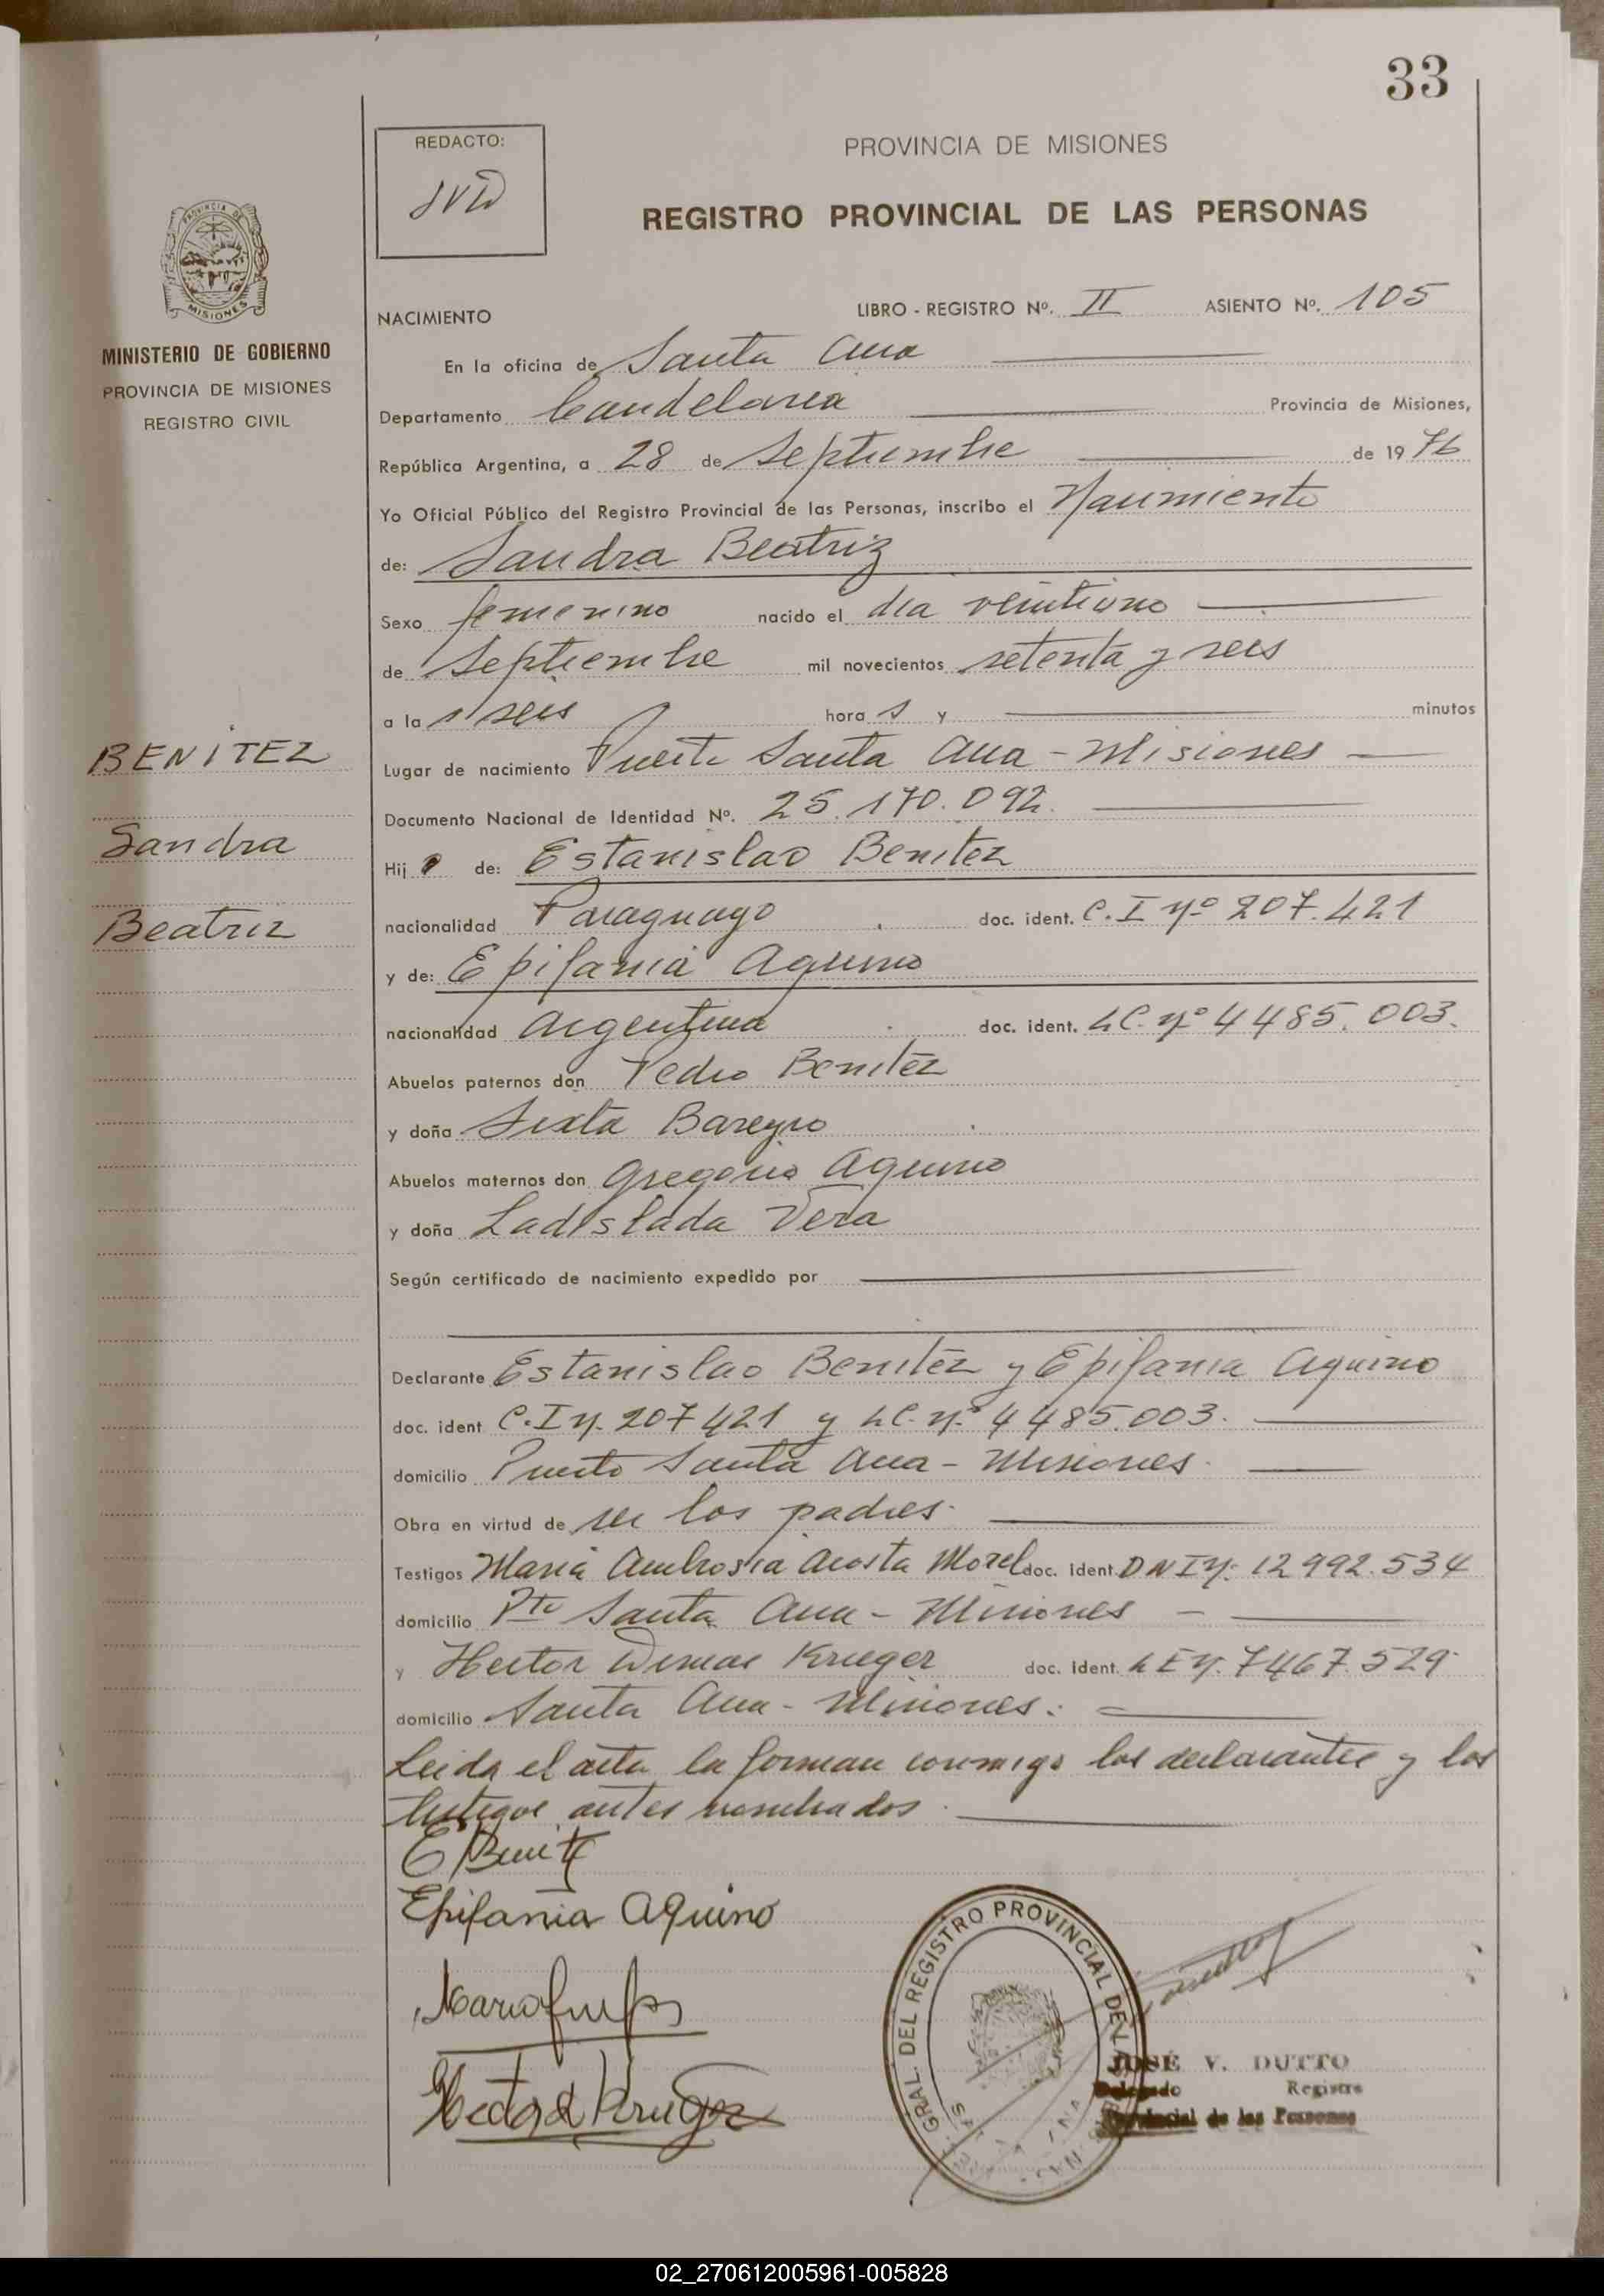 33
REDACTO:
JVD
PROVINCIA DE MISIONES
REGISTRO PROVINCIAL DE LAS PERSONAS
PROVINCIA DE
MISIONES
MINISTERIO DE GOBIERNO
PROVINCIA DE MISIONES
REGISTRO CIVIL
BENITEZ
Sandra
Beatriz
NACIMIENTO LIBRO - REGISTRO Nº. II ASIENTO Nº. 105
En la oficina de Santa Ana
Departamento Candelaria Provincia de Misiones,
República Argentina, a 28 de Septiembre de 1976
Yo Oficial Público del Registro Provincial de las Personas, inscribo el Nacimiento
de: Sandra Beatriz
Sexo femenino nacido el dia veintiuno
de Septiembre mil novecientos setenta y seis
a la s seis hora s y minutos
Lugar de nacimiento Puerto Santa Ana - Misiones
Documento Nacional de Identidad Nº. 25.170.092.
Hij de: Estanislao Benitez
nacionalidad Paraguayo doc. ident. C.I Nº 207.421
y de: Epifania Aquino
nacionalidad Argentina doc. ident. LC. Nº 4485.003.
Abuelos paternos don Pedro Benitez
y doña Sixta Bareyro
Abuelos maternos don Gregorio Aquino
y doña Ladislada Vera
Según certificado de nacimiento expedido por
Declarante Estanislao Benitez y Epifania Aquino
doc. ident C.I N. 207421 y LC. Nº 4485.003.
domicilio Puerto Santa Ana - Misiones.
Obra en virtud de ser los padres.
Testigos Maria Ambrosia Acosta Morel doc. ident. DNI N: 12992.534
domicilio Pto Santa Ana - Misiones -
y Hector Demar Krieger doc. ident. LE N. 7467.529.
domicilio Santa Ana - Misiones.
Leida el acta la forman conmigo los declarantes y los
testigos antes nombrados.
E Benitz
Epifania Aquino
Hector Krieger
GRAL. DEL REGISTRO PROVINCIAL DE LAS
JOSÉ V. DUTTO
Delegado Registro
Provincial de las Personas
02_270612005961-005828